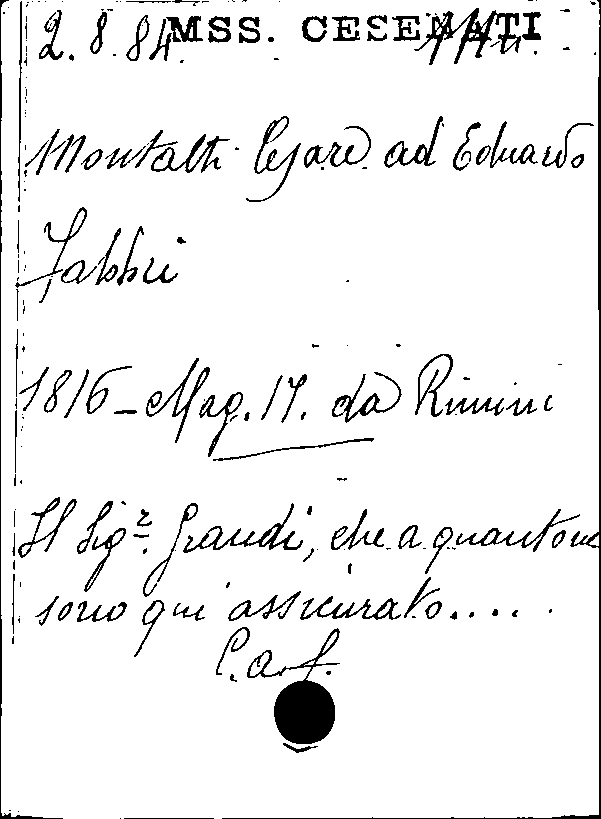 2.8.84. MSS. CESENATI
Montalti Cesare ad Eduardo
Fabbri
1816 - Mag. 17. da Rimini
Il Sigr. Grandi, che a quanto me
sono qui assicurato.....
C.a.f.